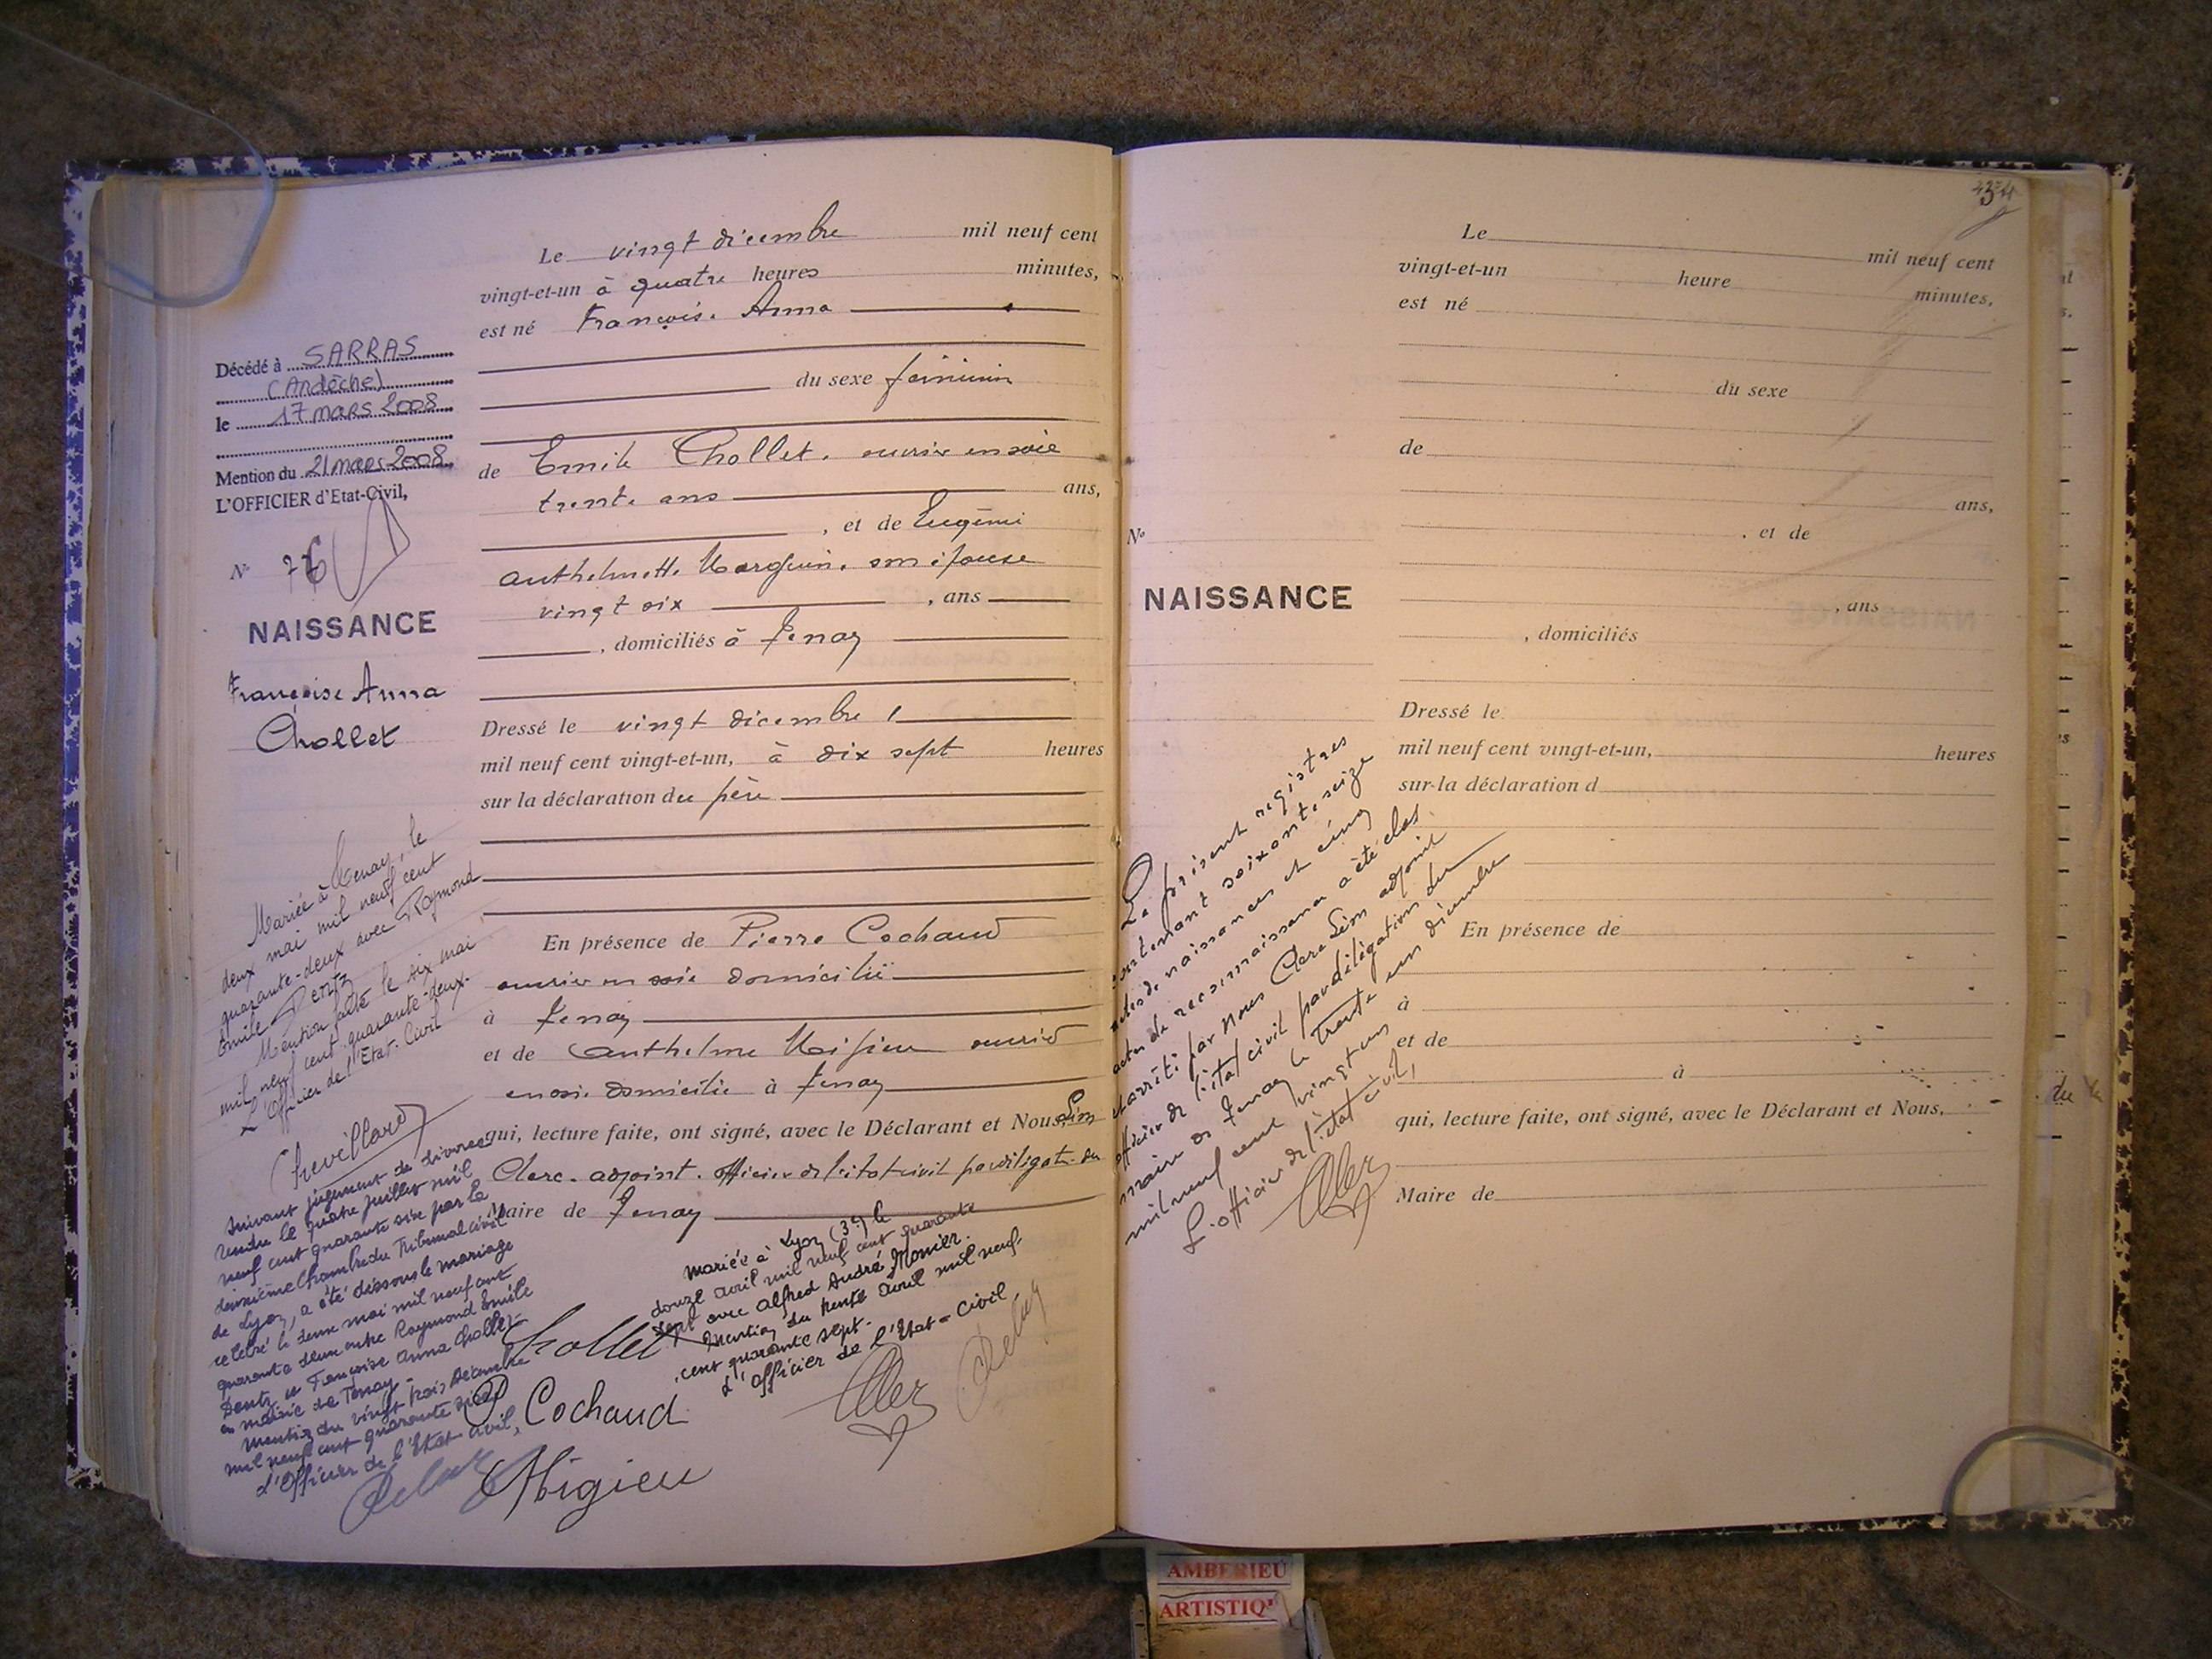 Le vingt décembre mil neuf cent
vingt-et-un à quatre heures minutes,
est né Françoise Anna
du sexe féminin
de Emile Chollet, ouvrier en soie
trente ans ans,
, et de Eugénie
Anthelmette Marguin, son épouse
vingt six , ans
, domiciliés à Tenay
Dressé le vingt décembre
mil neuf cent vingt-et-un, à dix sept heures
sur la déclaration du père
En présence de Pierre Cochaud
ouvrier en soie domicilié
à Tenay
et de Anthelme Migieu ouvrier
en soie domicilié à Tenay
qui, lecture faite, ont signé, avec le Déclarant et Nous Léon
Clerc, adjoint, officier de l'état civil par délégation du
Maire de Tenay
Chollet
P. Cochaud
Migieu
Clerc
Décédé à SARRAS
(Ardèche)
le 17 mars 2008
Mention du 21 mars 2008
L'OFFICIER d'Etat-Civil,
N° 76
NAISSANCE
Françoise Anna
Chollet
Mariée à Tenay, le
deux mai mil neuf cent
quarante-deux avec Raymond
Emile Dentz
Mention faite le six mai
mil neuf cent quarante-deux.
L'Officier de l'Etat-Civil
Chevillard
Suivant jugement de divorce
rendu le quatre juillet mil
neuf cent quarante six par la
deuxième Chambre du Tribunal civil
de Lyon, a été dissous le mariage
célébré le deux mai mil neuf cent
quarante deux entre Raymond Emile
Dentz et Françoise Anna Chollet
en mairie de Tenay.
Mention du vingt trois décembre
mil neuf cent quarante six
L'Officier de l'Etat civil,
Mariée à Lyon (3e) le
douze avril mil neuf cent quarante
sept avec Alfred André Monier.
Mention du trente avril mil neuf
cent quarante sept.
L'Officier de l'Etat-Civil,
Le mil neuf cent
vingt-et-un heure minutes,
est né
du sexe
de
ans,
, et de
, ans
, domiciliés
N°
NAISSANCE
Dressé le
mil neuf cent vingt-et-un, heures
sur la déclaration d
En présence de
à
et de
à
qui, lecture faite, ont signé, avec le Déclarant et Nous,
Maire de
Le présent registres
contenant soixante seize
actes de naissances et cinq
actes de reconnaissance a été clos
et arrêté par nous Clerc Léon adjoint
officier de l'état civil par délégation du
maire de Tenay le trente un décembre
mil neuf cent vingt un
L'officier de l'état civil,
Clerc
AMBERIEU
ARTISTIQ